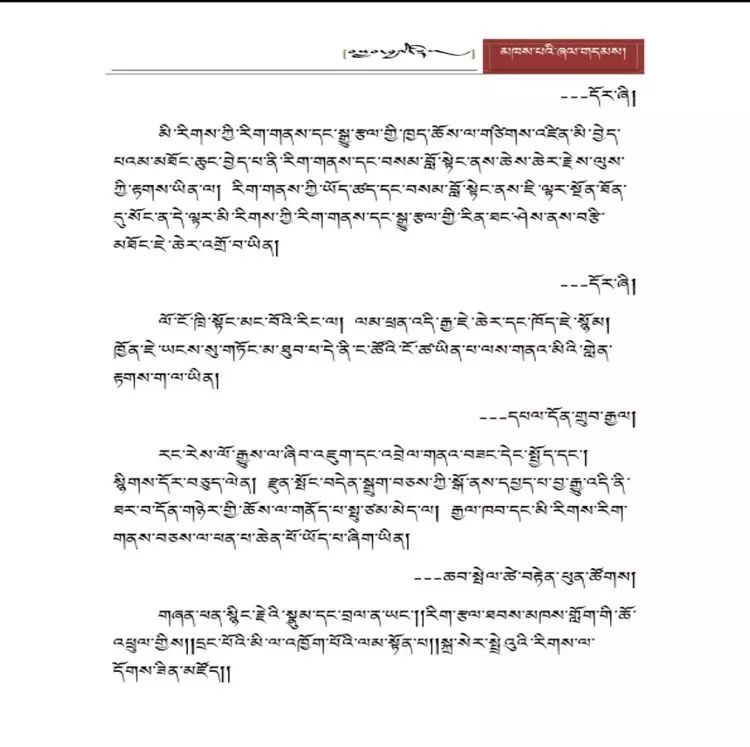 མཁས་པའི་ཞལ་གདམས།
---དོར་ཞི།
མི་རིགས་ཀྱི་རིག་གནས་དང་སྒྱུ་རྩལ་གྱི་ཁྱད་ཆོས་ལ་གཅེིགས་འཛིན་མི་བྱེད་
པའམ་མཐོང་ཆུང་བྱེད་པ་ནི་རིག་གནས་དང་བསམ་བློ་སྟེང་ནས་ཆེས་ཆེར་རྗེས་ལུས་
ཀྱི་རྟགས་ཡིན་ལ། རིག་གནས་ཀྱི་ཡོད་ཚད་དང་བསམ་བློ་སྟེང་ནས་ཇི་ལྟར་སྔོན་ཐོན་
དུ་སོང་ན་དེ་ལྟར་མི་རིགས་ཀྱི་རིག་གནས་དང་སྒྱུ་རྩལ་གྱི་རིན་ཐང་ཤེས་ནས་བརྩི་
མཐོང་ཇེ་ཆེར་འགྲོ་བ་ཡིན།
---དོར་ཞི།
ལོ་ངོ་ཁྲི་སྟོང་མང་བོའི་རིང་ལ། ལམ་ཕྲན་འདི་རྒྱ་ཇེ་ཆེར་དང་ཁོད་ཇེ་སྙོམ།
ཁྱོན་ཇེ་ཡངས་སུ་གཏོང་མ་ཐུབ་པ་དེ་ནི་ང་ཚོའི་ངོ་ཚ་ཡིན་པ་ལས་གནའ་མིའི་གླེན་
རྟགས་ག་ལ་ཡིན།
---དཔལ་དོན་གྲུབ་རྒྱལ།
རང་རེས་ལོ་རྒྱུས་ལ་ཞིབ་འཇུག་དང་འབྲེལ་གནའ་བཟང་དེང་སྤྱོད་དང་།
སྙིགས་དོར་བཅུད་ལེན། རྫུན་སྤོང་བདེན་སྒྲུག་བཅས་ཀྱི་སྒོ་ནས་དཔྱད་པ་བྱ་རྒྱུ་འདི་ནི་
ཐར་བ་དོན་གཉེར་གྱི་ཆོས་ལ་གནོད་པ་སྤུ་ཙམ་མེད་ལ། རྒྱལ་ཁབ་དང་མི་རིགས་རིག་
གནས་བཅས་ལ་ཕན་པ་ཆེན་པོ་ཡོད་པ་ཞིག་ཡིན།
---ཆབ་སྤེལ་ཚེ་བརྟེན་ཕུན་ཚོགས།
གཞན་ཕན་སྙིང་རྗེའི་སྣུམ་དང་བྲལ་ན་ཡང་།།རིག་རྩལ་ཐབས་མཁས་གློག་གི་ཆོ་
འཕྲུལ་གྱིས།།དྲང་པོའི་མི་ལ་འཁྱོག་པོའི་ལམ་སྟོན་པ།།སྐྲ་སེར་སྤྲེའུའི་རིགས་ལ་
དོགས་ཟིན་མཛོད།།